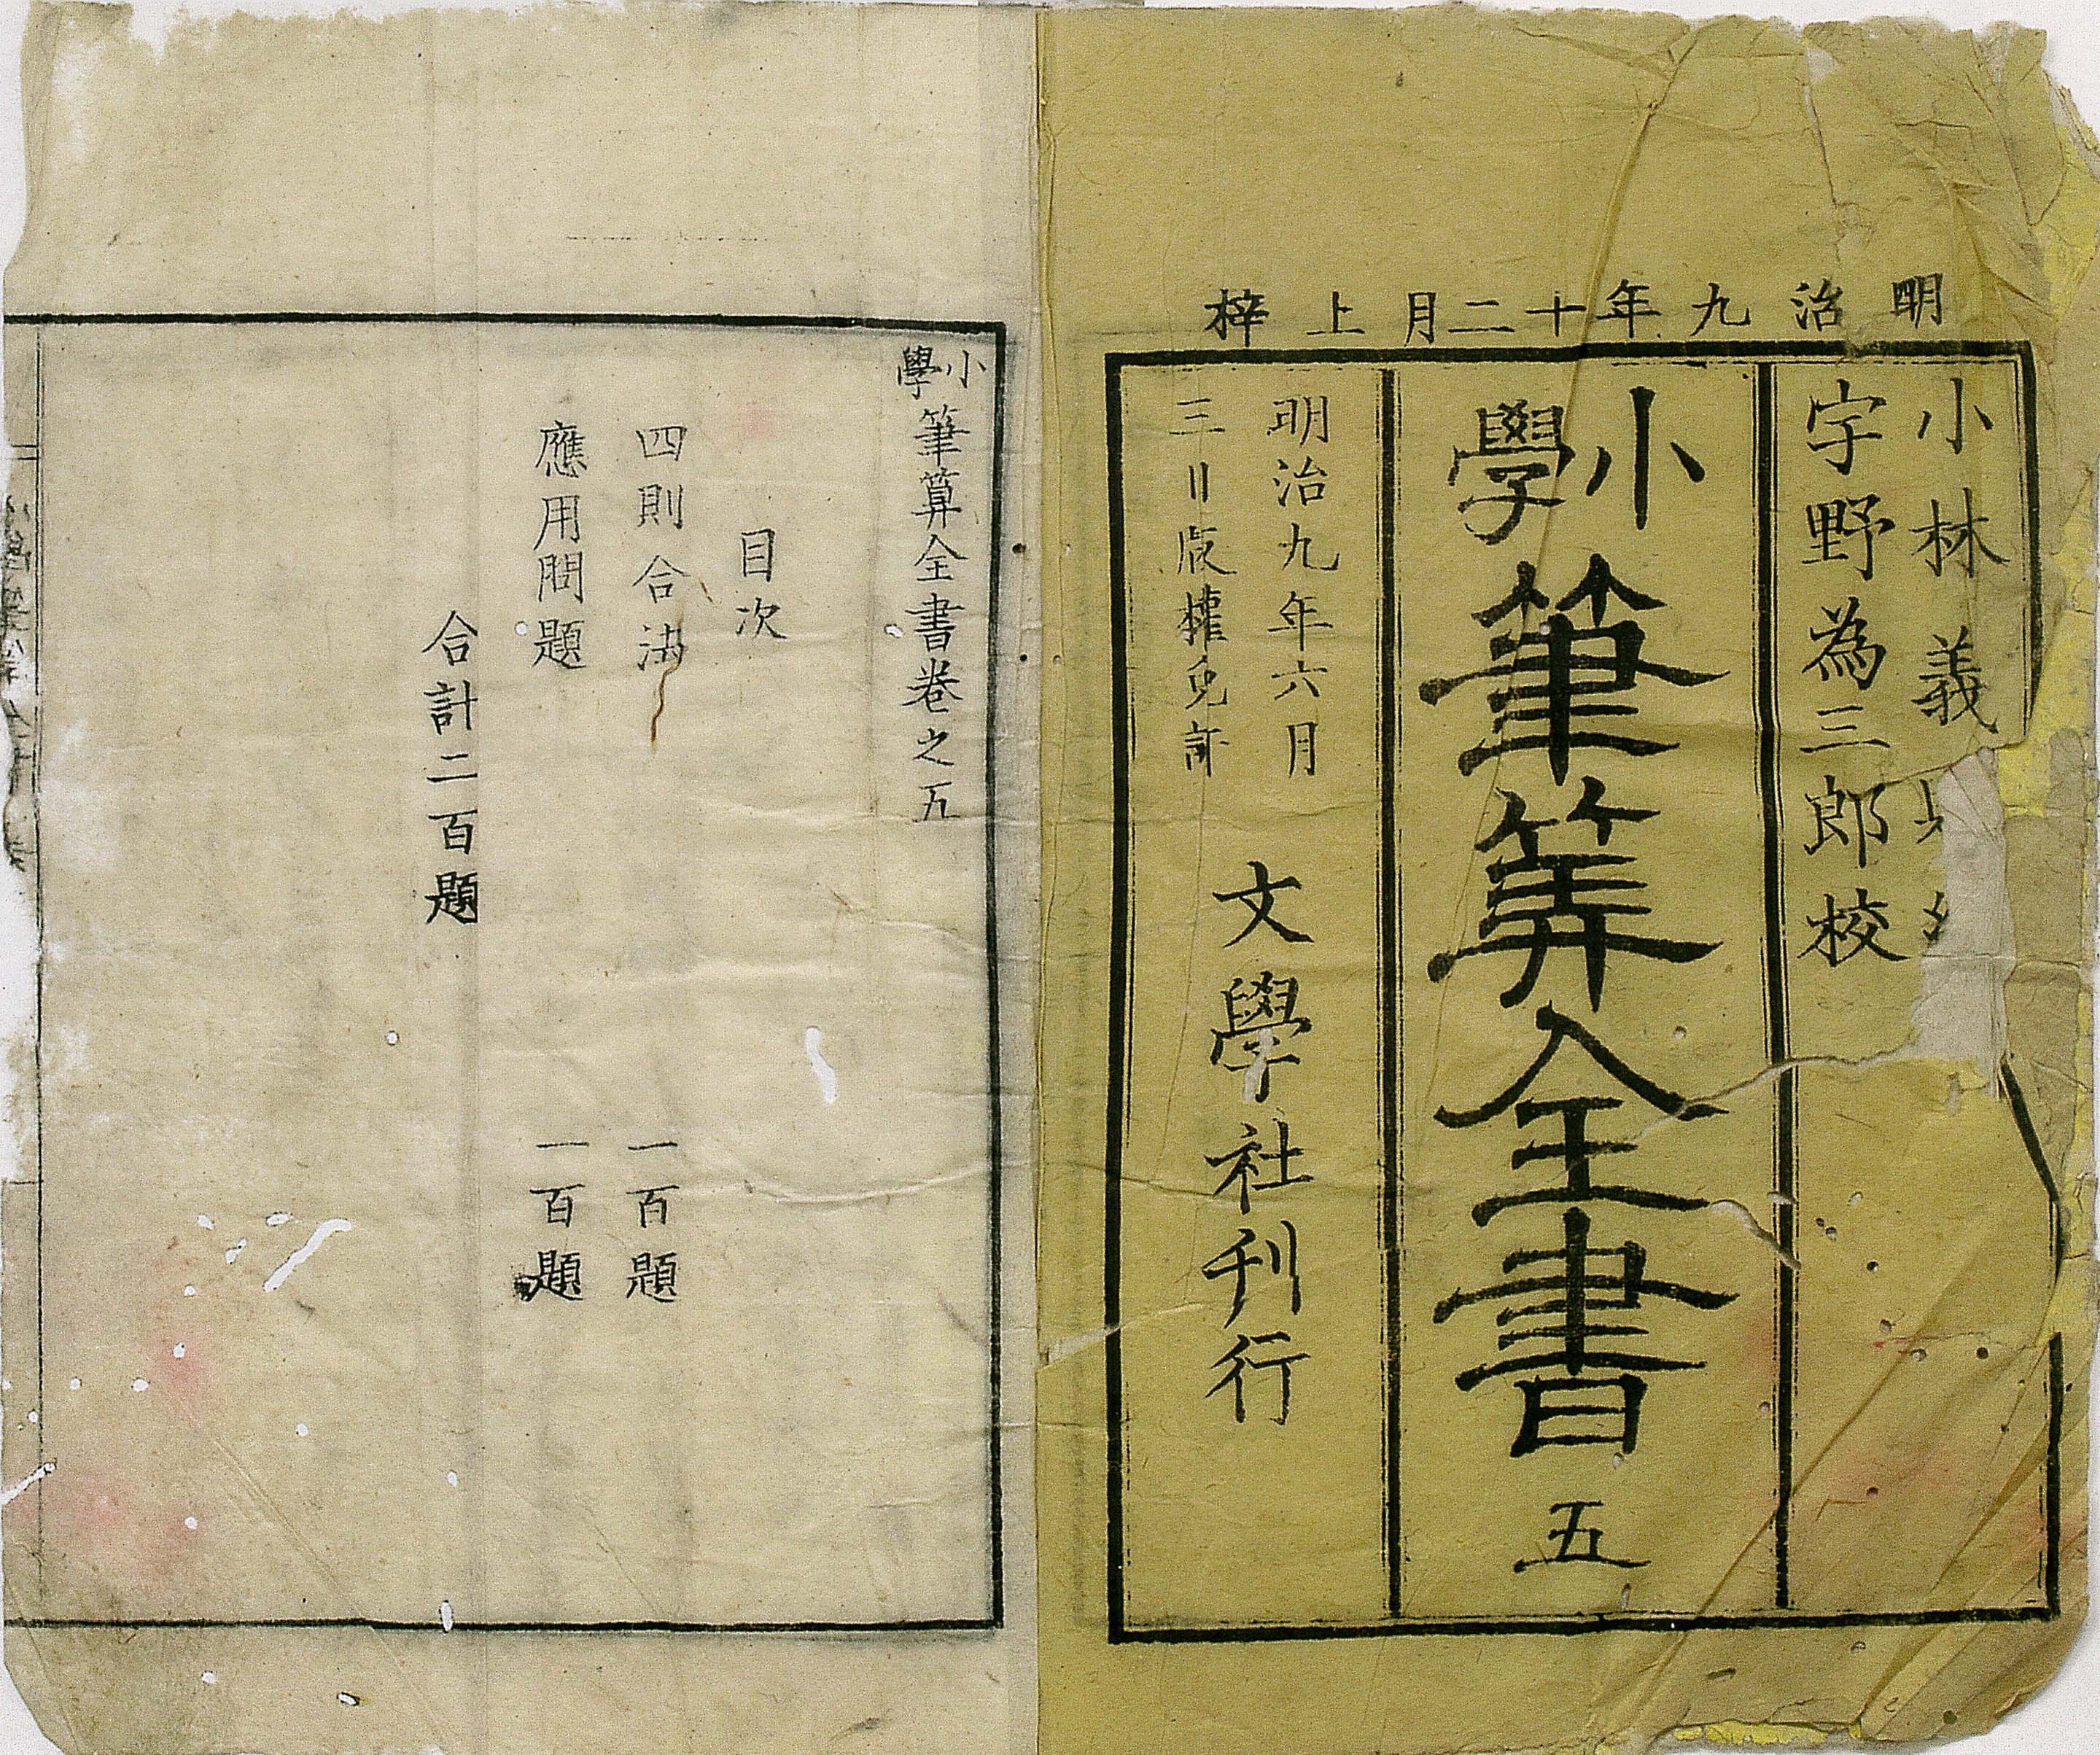 明治九年十二月上梓
小林義
宇野為三郎校
小學筆算全書 五
明治九年六月
三日版權免許
文學社刊行
小學筆算全書卷之五
目次
四則合法 一百題
應用問題 一百題
合計二百題